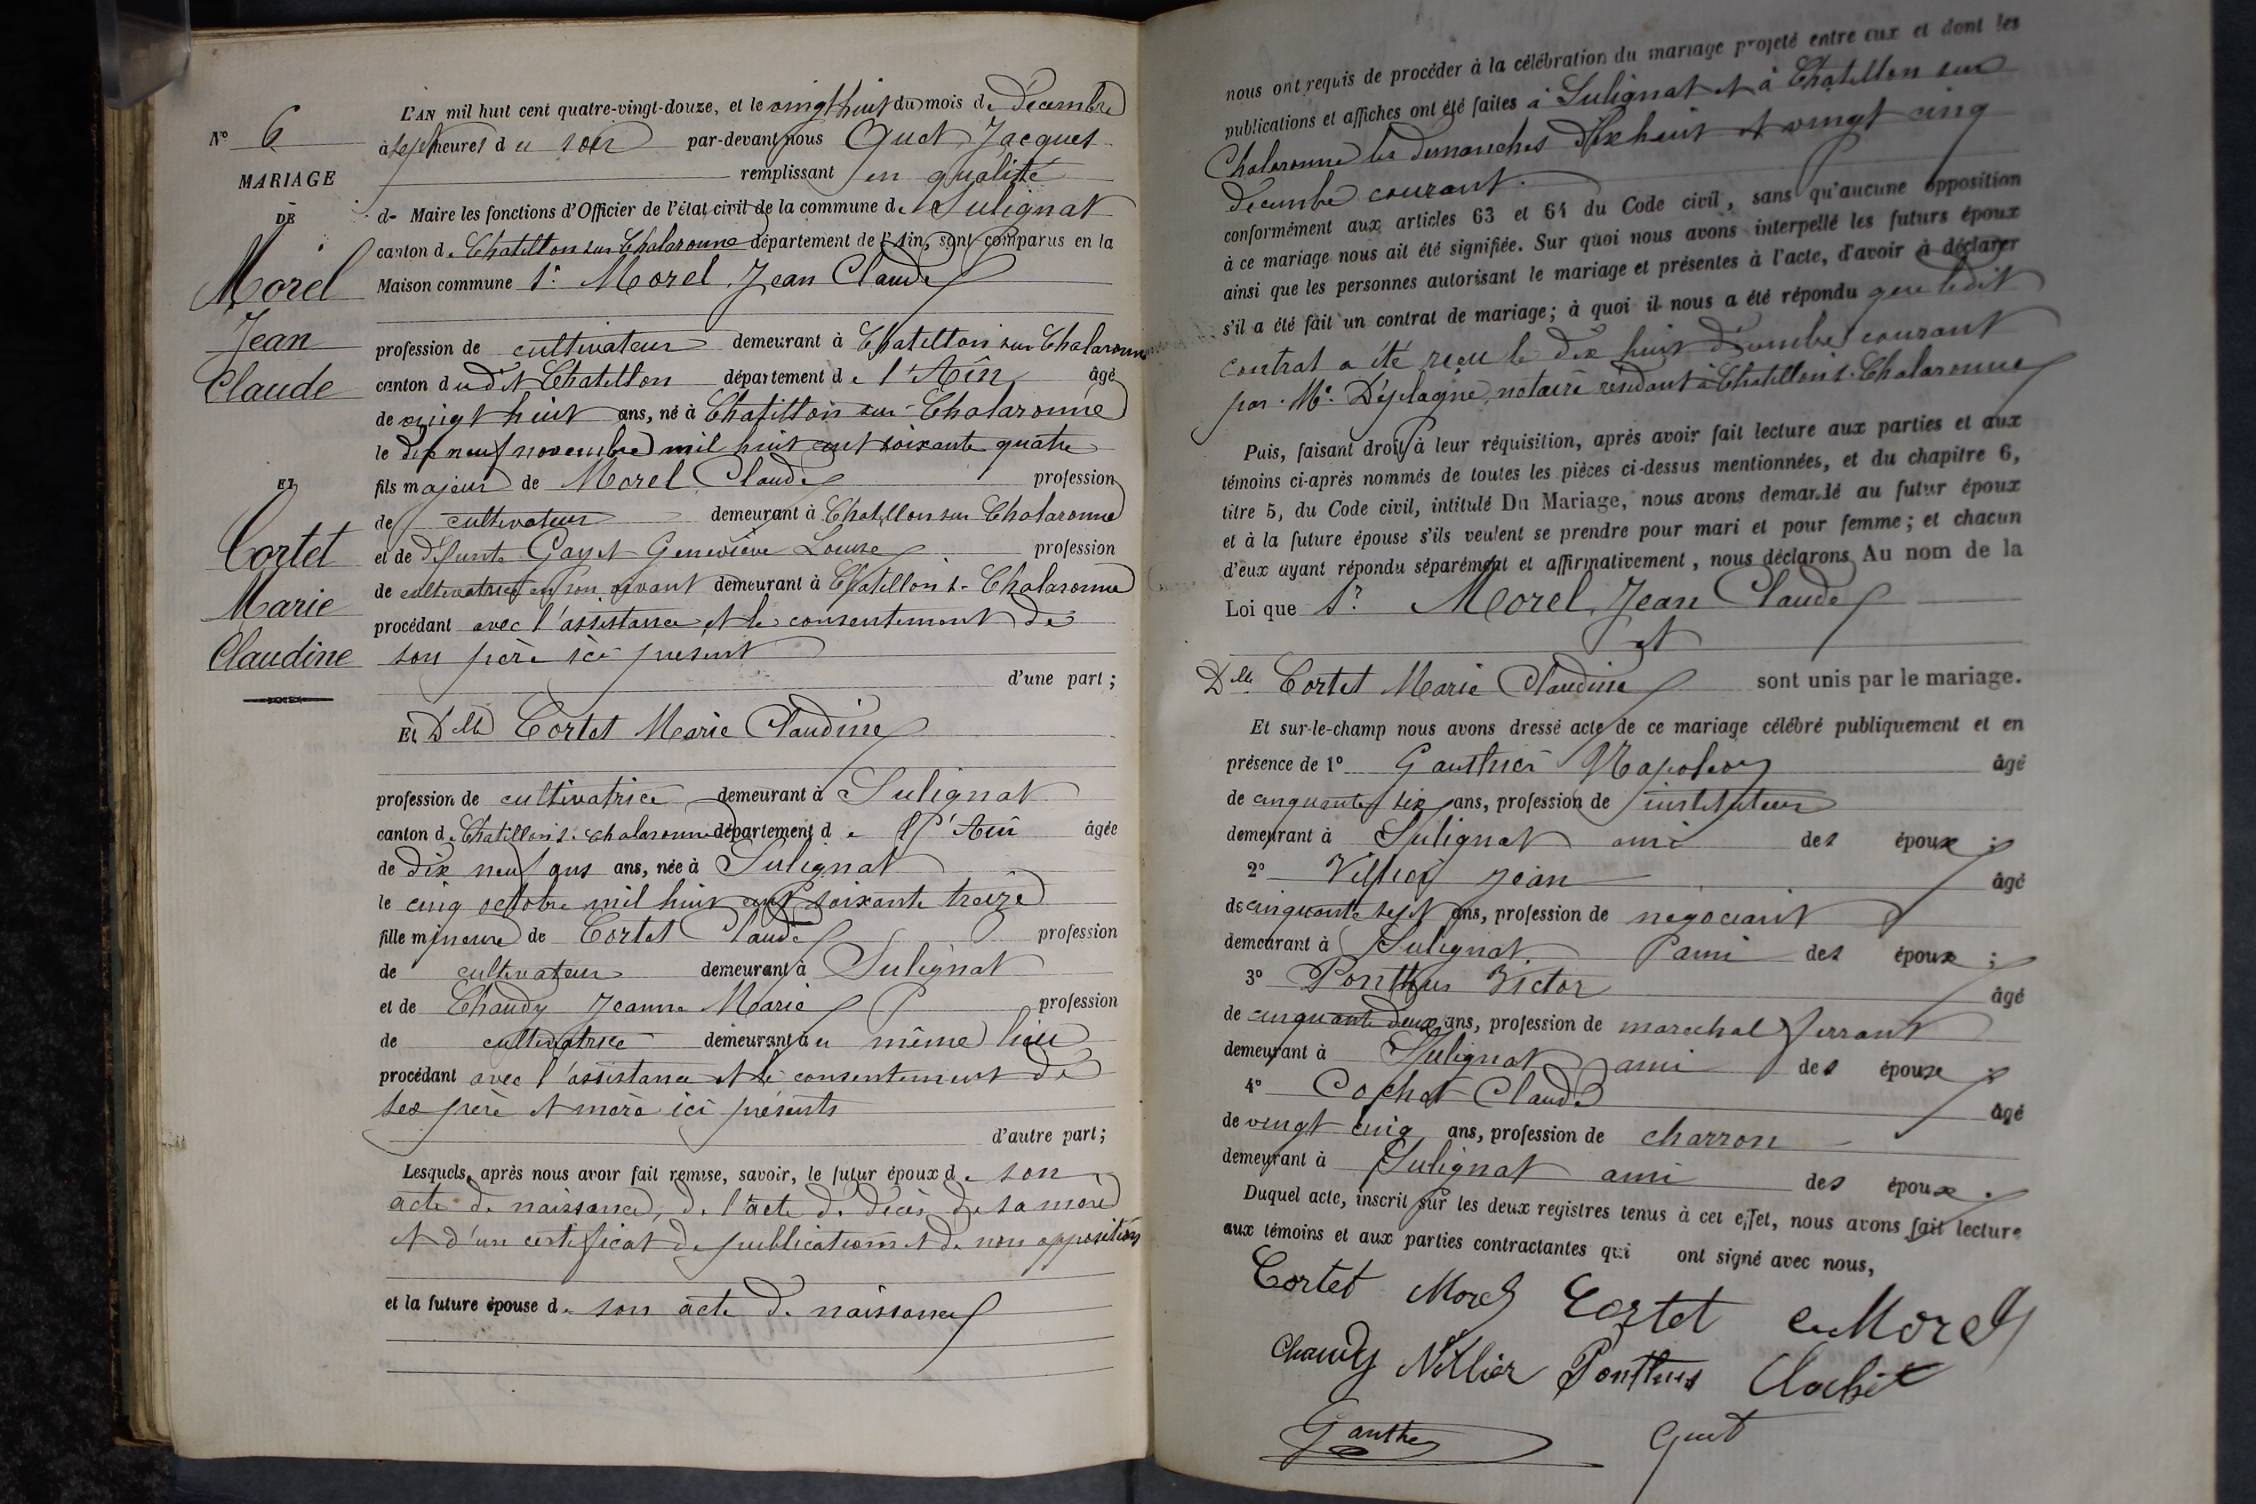 N° 6
MARIAGE
DE
Morel
Jean
Claude
ET
Cortet
Marie
Claudine
L'AN mil huit cent quatre-vingt-douze, et le vingt huit du mois de Décembre
à sept heures du soir par-devant nous Guet, Jacques
remplissant en qualité
de Maire les fonctions d'Officier de l'état civil de la commune de Sulignat
canton de Chatillon sur Chalaronne département de l'Ain, sont comparus en la
Maison commune 1° Morel, Jean Claude
profession de cultivateur demeurant à Chatillon sur Chalaronne
canton dudit Chatillon département de l'Ain âgé
de vingt huit ans, né à Chatillon sur Chalaronne
le dix neuf novembre mil huit cent soixante quatre
fils majeur de Morel Claude profession
de cultivateur demeurant à Chatillon sur Chalaronne
et de défunte Gayet Geneviève Louise profession
de cultivatrice en son vivant demeurant à Chatillon s. Chalaronne
procédant avec l'assistance et le consentement de
son père ici présent
d'une part;
Et Dlle Cortet Marie Claudine
profession de cultivatrice demeurant à Sulignat
canton de Chatillon s. Chalaronne département de l'Ain âgée
de dix neuf ans ans, née à Sulignat
le cinq octobre mil huit cent soixante treize
fille mineure de Cortet Claude profession
de cultivateur demeurant à Sulignat
et de Chaudy Jeanne Marie profession
de cultivatrice demeurant au même lieu
procédant avec l'assistance et le consentement de
ses père et mère ici présents
d'autre part;
Lesquels, après nous avoir fait remise, savoir, le futur époux de son
acte de naissance, de l'acte de décès de sa mère
et d'un certificat de publications et de non opposition
et la future épouse de son acte de naissance
nous ont requis de procéder à la célébration du mariage projeté entre eux et dont les
publications et affiches ont été faites à Sulignat et à Chatillon sur
Chalaronne les dimanches dix huit et vingt cinq
décembre courant.
conformément aux articles 63 et 64 du Code civil, sans qu'aucune opposition
à ce mariage nous ait été signifiée. Sur quoi nous avons interpellé les futurs époux
ainsi que les personnes autorisant le mariage et présentes à l'acte, d'avoir à déclarer
s'il a été fait un contrat de mariage; à quoi il nous a été répondu que ledit
contrat a été reçu le dix huit décembre courant
par Me Déplagne, notaire résidant à Chatillon s. Chalaronne
Puis, faisant droit à leur réquisition, après avoir fait lecture aux parties et aux
témoins ci-après nommés de toutes les pièces ci-dessus mentionnées, et du chapitre 6,
titre 5, du Code civil, intitulé Du Mariage, nous avons demandé au futur époux
et à la future épouse s'ils veulent se prendre pour mari et pour femme; et chacun
d'eux ayant répondu séparément et affirmativement, nous déclarons Au nom de la
Loi que Sr Morel, Jean Claude
et
Dlle Cortet Marie Claudine sont unis par le mariage.
Et sur-le-champ nous avons dressé acte de ce mariage célébré publiquement et en
présence de 1° Gauthier Napoléon âgé
de cinquante six ans, profession de instituteur
demeurant à Sulignat ami des époux;
2° Jean âgé
de cinquante sept ans, profession de negociant
demeurant à Sulignat, ami des époux;
3° Ponthus Victor âgé
de cinquante deux ans, profession de marechal ferrant
demeurant à Sulignat ami des époux;
4° Cochet Claude âgé
de vingt cinq ans, profession de charron
demeurant à Sulignat ami des époux.
Duquel acte, inscrit sur les deux registres tenus à cet effet, nous avons fait lecture
aux témoins et aux parties contractantes qui ont signé avec nous,
Cortet Morel Cortet Morel
Chaudy Ponthus Cochet
Gauthier Guet